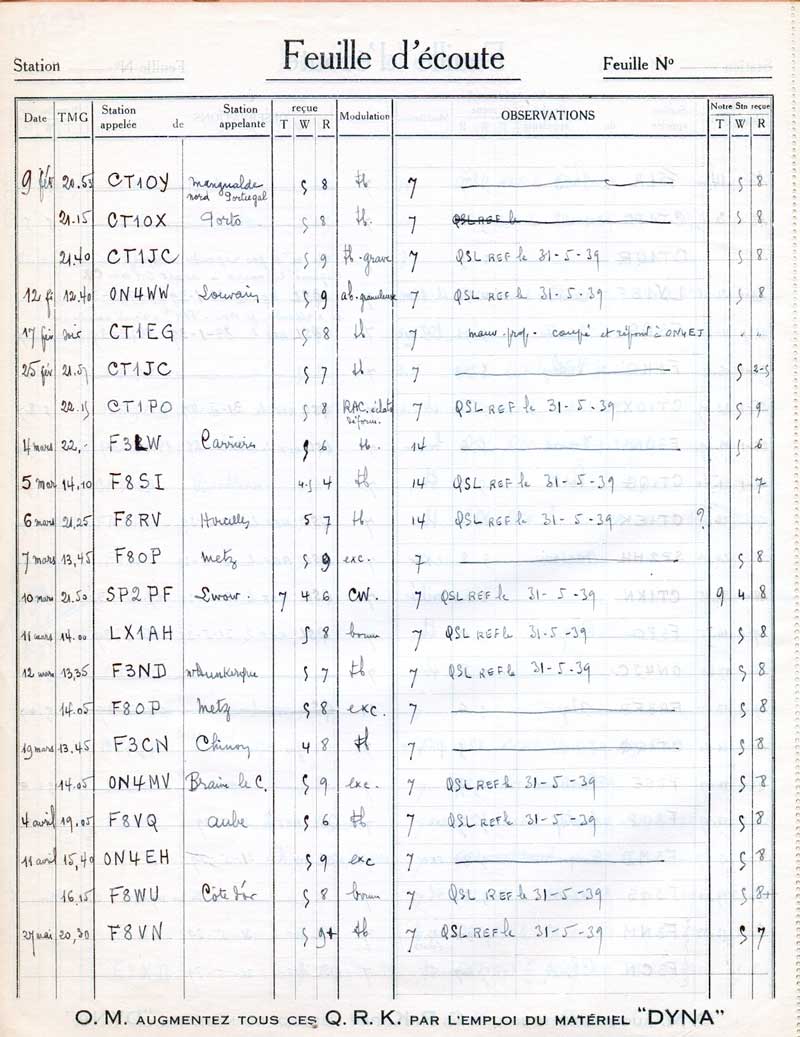 Station Feuille d'écoute Feuille No
Date TMG Station appelée de Station appelante reçue T W R Modulation OBSERVATIONS Notre Stn reçue T W R
9 fév 20.55 CT1OY Mangualde nord Portugal 5 8 tb 7 5 8
21.15 CT1OX Porto 5 8 tb. 7 QSL REF le 5 8
21.40 CT1JC 5 9 tb-grave 7 QSL REF le 31-5-39 5 8
12 fé 12.40 ON4WW Louvain 5 9 ab-granuleuse 7 QSL REF le 31-5-39 5 8
17 fév soir CT1EG 5 8 tb 7 mauv. prop. coupé et répond à ON4EJ " "
25 fév 21.57 CT1JC 5 7 tb 7 5 2-5
22.15 CT1PO 5 8 RAC. 7 QSL REF le 31-5-39 5 9
4 mars 22,- F3LW Carrières 5 6 tb. 14 5 6
5 mar 14.10 F8SI 4-5 4 tb 14 QSL REF le 31-5-39 7
6 mars 21,25 F8RV 5 7 tb 14 QSL REF le 31-5-39 ?
7 mars 13,45 F8OP Metz 5 9 exc. 7 5 8
10 mars 21.50 SP2PF Lwow. 7 4 6 CW. 7 QSL REF le 31-5-39 9 4 8
11 mars 14.00 LX1AH 5 8 bonn 7 QSL REF le 31-5-39 5 8
12 mars 13,35 F3ND Dunkerque 5 7 tb 7 QSL REF le 31-5-39 5 8
14.05 F8OP Metz 5 8 exc. 7 5 8
19 mars 13.45 F3CN Chinon 4 8 tb 7 5 8
14.05 ON4MV Braine le C. 5 9 exc. 7 QSL REF le 31-5-39 5 8
4 avril 19.05 F8VQ aube 5 6 tb 7 QSL REF le 31-5-39 5 8
11 avril 15,40 ON4EH 5 9 exc 7 5 8
16.15 F8WU Côte d'or 5 8 bonn 7 QSL REF le 31-5-39 5 8+
27 mai 20,30 F8VN 5 9+ tb 7 QSL REF le 31-5-39 5 7
O. M. AUGMENTEZ TOUS CES Q. R. K. PAR L'EMPLOI DU MATÉRIEL "DYNA"